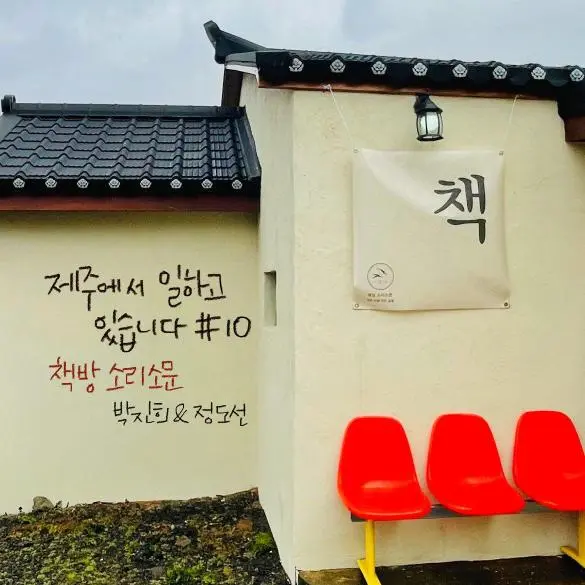 제주에서 일하고
있습니다 #10
책방 소리소문
박진희 & 정도선
책
책방 소리소문